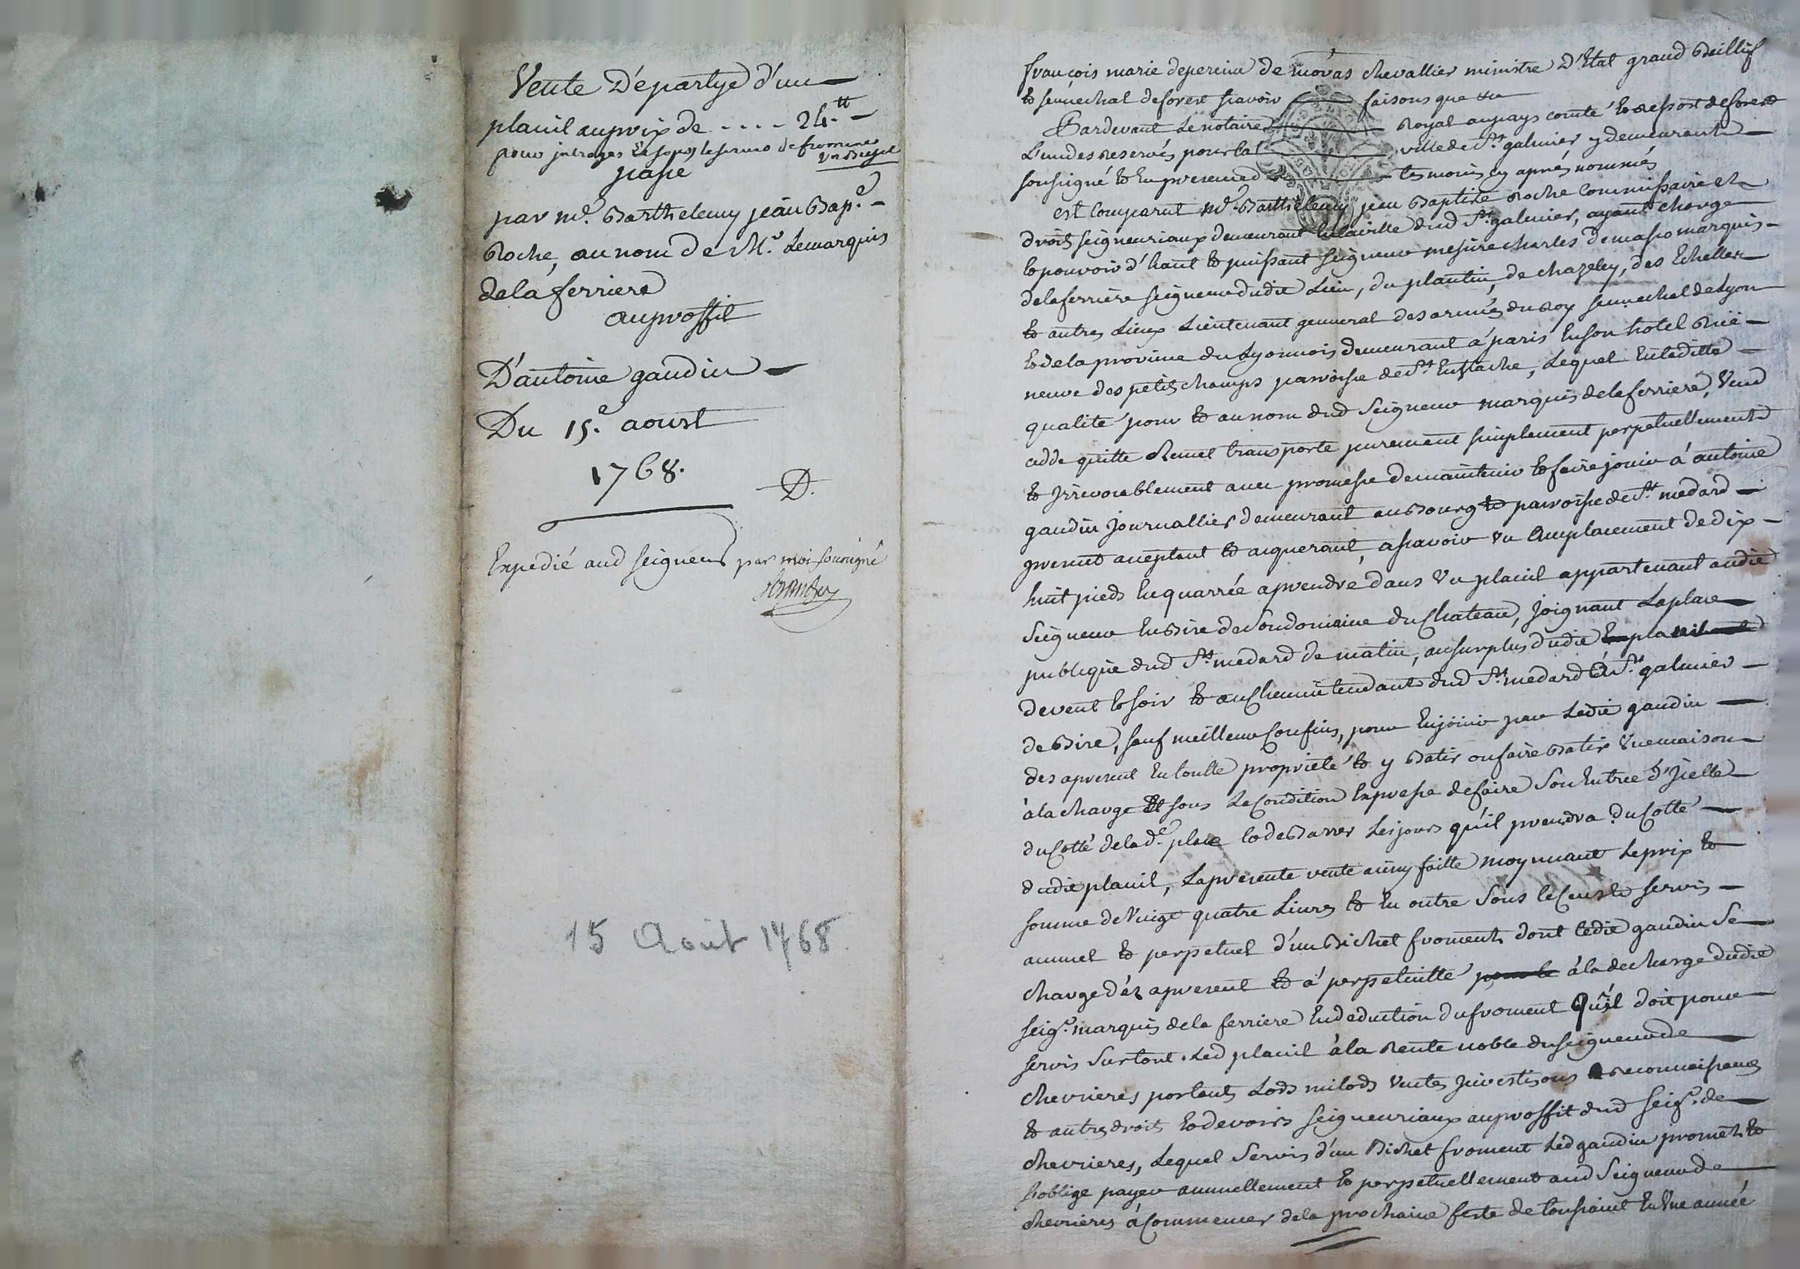 Vente D'epartye d'un
placil au prix de - - - - 24.tt
passé
par me. Barthelemy jean Bap.e
Roche, au nom de Mr. Lemarquis
delaferriere
auproffit
D'antoine gaudin
Du 15.e aoust
1768.
D.
Expedié aud seigneur par moi soussigné
15 Aout 1768
françois marie deperein de moras chevallier ministre D'Etat grand Baillif
et senechal deforest scavoir faisons que
Pardevant Lenotaire Royal au pays comté et ressort deforest
L'un des reservés pour la ville de St. galmier y demeurant
soussigné et en presence des temoins cy aprés nommés
est comparut Me. Barthelemy jean Baptiste Roche commissaire en
droits seigneuriaux demeurant en la ville dud St. galmier, ayant charge
et pouvoir d'haut et puissant seigneur messire charles demasso marquis
delaferriere seigneur dudit Lieu, du plantin, de chazeley, des Echelles
et autres Lieux Lieutenant general des armées du Roy senechal de Lyon
et dela province du Lyonnois demeurant á paris en son hotel Rüe
neuve des petits champs parroisse de St. Eustache, Lequel en laditte
qualité pour et au nom dud seigneur marquis delaferriere, vend
cedde quitte Remet transporte purement simplement perpetuellement
et jrrevocablement avec promesse demaintenir et faire jouir á antoine
gaudin journallier demeurant au Bourg et parroisse de St. medard
present aceptant et aquerant, ascavoir un Emplacement de dix
huit pieds en quarrée aprendre dans un placil appartenant audit
seigneur en Bize de son domaine du chateau, joignant Laplace
publique dud St. medard de matin, au surplus dudit placil
devent et soir et au chemin tendant dud St. medard á St. galmier
de Bize, sauf meilleurs confins, pour en jouir par Ledit gaudin
des apresent en toutte proprieté et y Batir ou faire Batir une maison
à la charge et sous La condition expresse de faire son Entrée d'jcelle
du cotté de lad.e place et de Barrer Les jours qu'il prendra du cotté
dudit placil, Lapresente vente ainsy faitte moyennant Le prix et
somme de vingt quatre Livres et en outre sous le cens et servis
annuel et perpetuel d'un Bichet froment, dont ledit gaudin se
charge d'és apresent et á perpetuitte á la decharge dudit
seigr. marquis de la ferriere En deduction du froment qu'il doit pour
servis sur tout Led placil à la Rente noble du seigneur de
chevrieres portant Lods milods ventes jnvestisons Reconnoissances
et autres droits et devoirs seigneuriaux au proffit dud seigr. de
chevrieres, Lequel servis d'un Bichet froment Led gaudin promet et
s'oblige payer annuellement et perpetuellement aud seigneur de
chevrieres á commencer dela prochaine feste de toussaint en une année